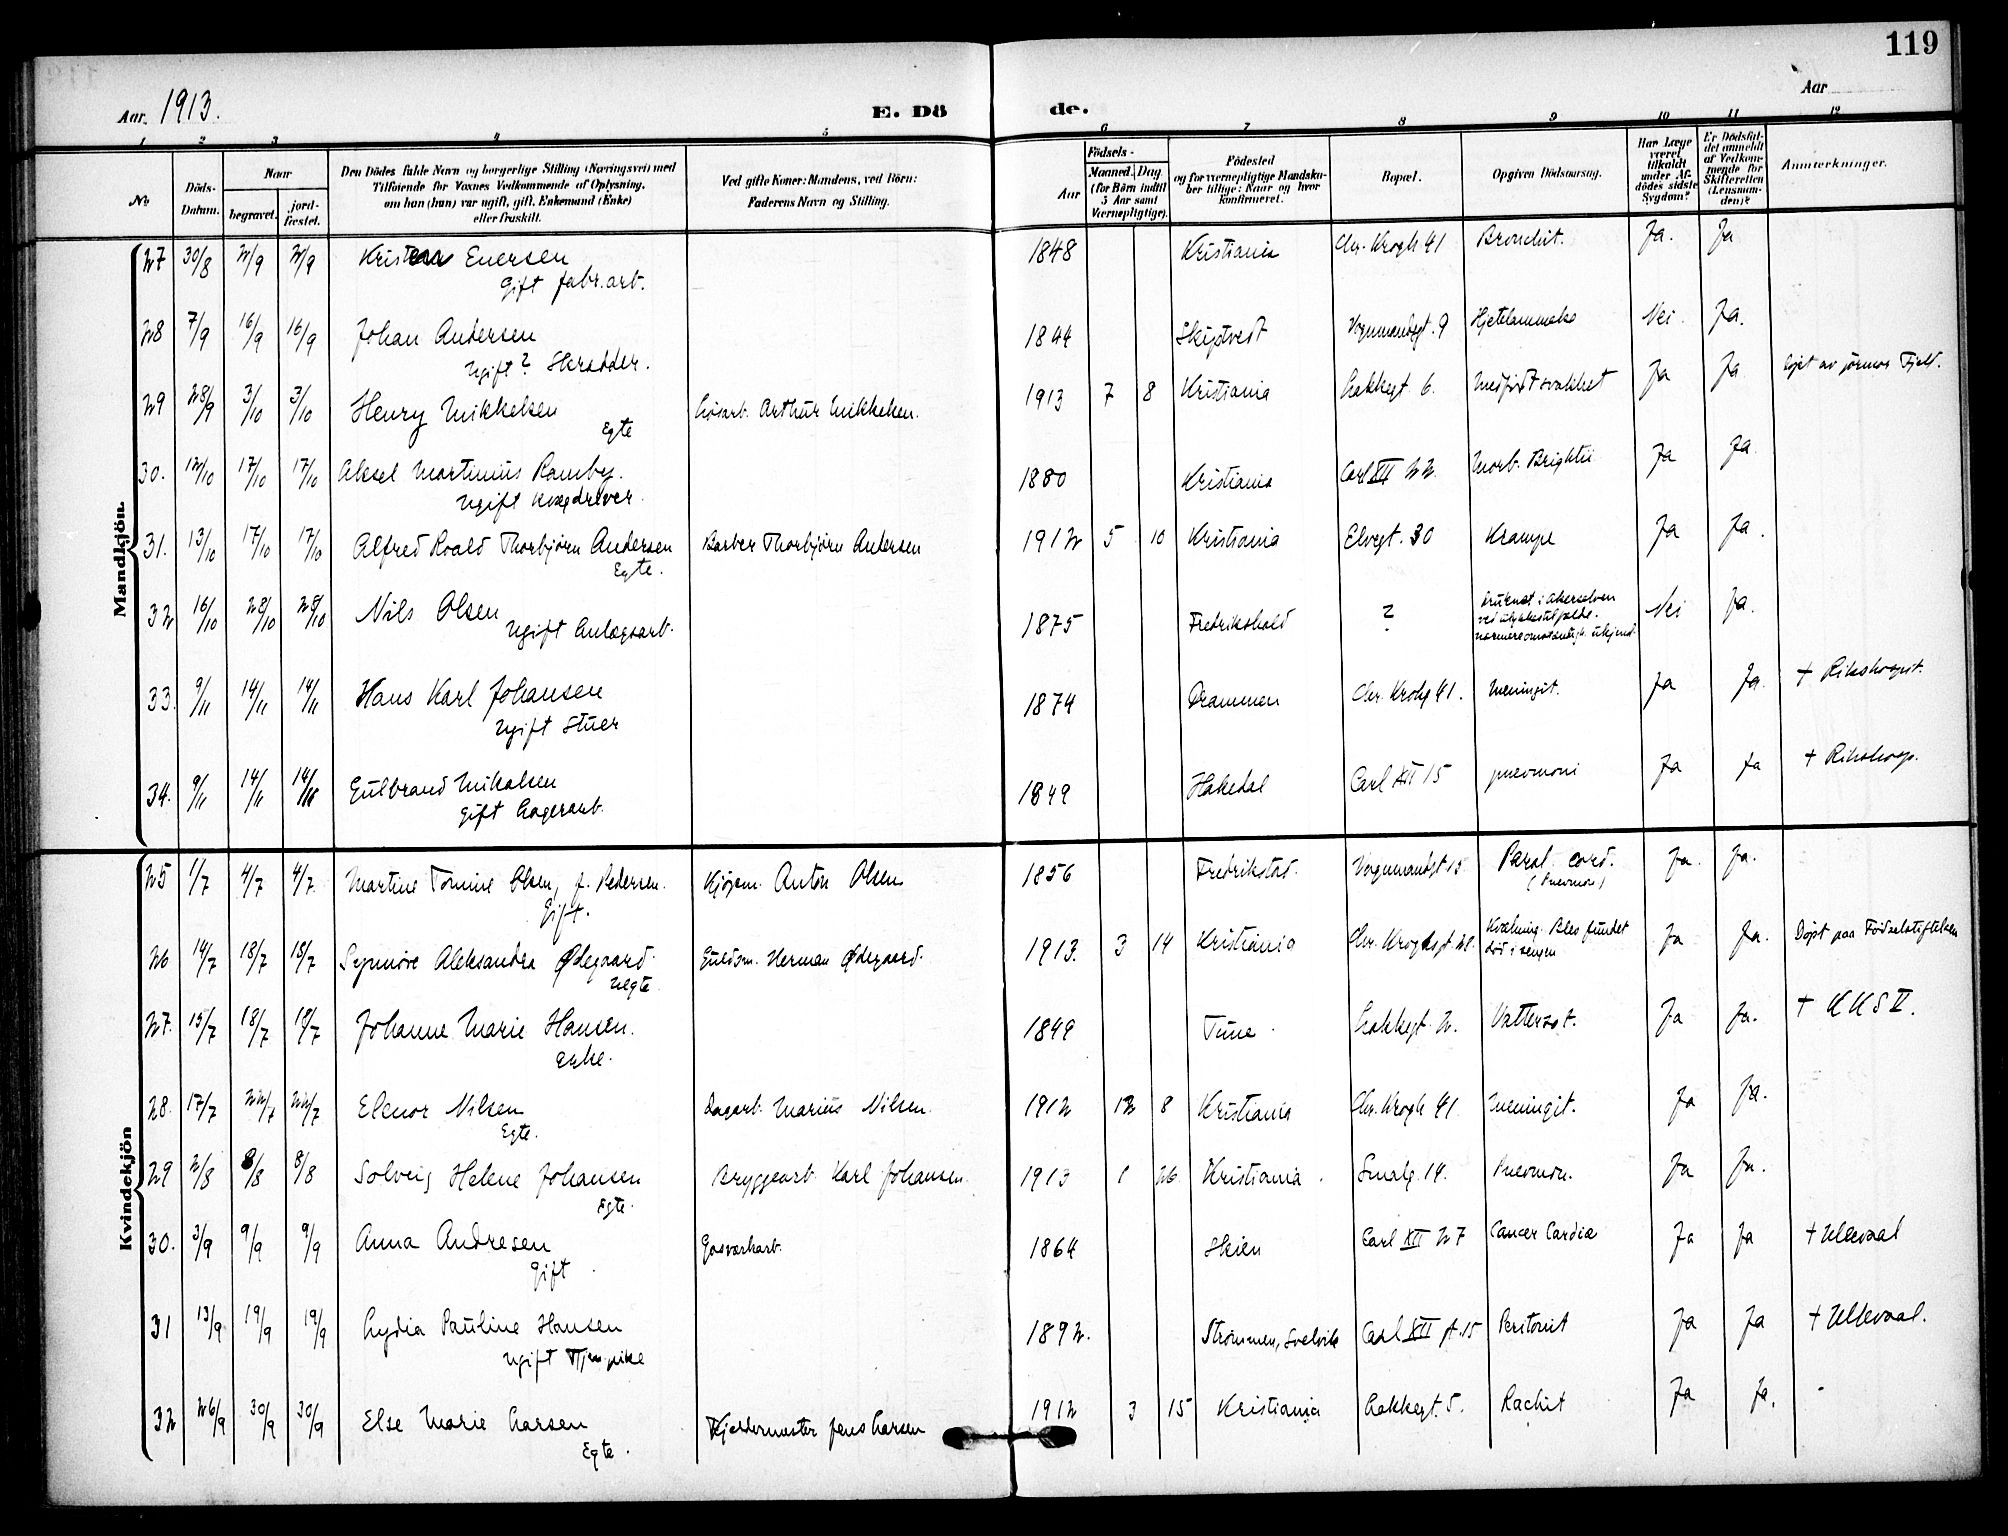 119
Aar. 1913.
E. Dö
de.
Aar
1 2 3 4 5 6 7 8 9 10 11 12
No
Döds-Datum.
Naar
begravet.
jord-fæstet.
Den Dödes fulde Navn og borgerlige Stilling (Næringsvei) med
Tilföiende for Voxnes Vedkommende af Oplysning,
om han (hun) var ugift, gift, Enkemand (Enke)
eller fraskilt.
Ved gifte Koner: Mandens, ved Börn:
Faderens Navn og Stilling.
Födsels-
Aar
Maaned. Dag
(for Börn indtil
5 Aar samt
Værnepligtige).
Födested
og for værnepligtige Mandska-
ber tillige: Naar og hvor
konfirmeret.
Bopæl.
Opgiven Dödsaarsag.
Har Læge
været
tilkaldt
under Af-
dödes sidste
Sygdom?
Er Dödsfal-
det anmeldt
af Vedkom-
mende for
Skifteretten
(Lensman-
den)?
Anmærkninger.
Mandkjön.
27 30/8 2/9 2/9 Enersen 1848 Kristiania Chr. Krogh 41 Bronchit. Ja. Ja
Gift fabr.arb.
28 7/9 16/9 16/9 Johan Andersen 1844 Skiptvedt Vognmandsgt. 9 Hjertelammelse Nei. Ja.
Ugift? Skrædder.
29 28/9 3/10 3/10 Henry Mikkelsen Løsarb. Arthur Mikkelsen. 1913 7 8 Kristiania Lakkegt 6. Medfødt svakhet Ja Ja
Egte
30. 12/10 17/10 17/10 Aksel Martinius Ramby. 1880 Kristiania Carl XII 22 Morb. Brightii Ja Ja.
Ugift Kvægdriver.
31. 13/10 17/10 17/10 Alfred Roald Thorbjørn Andersen Barber Thorbjørn Andersen 1912 5 10 Kristiania Elvegt. 30 Krampe Ja Ja.
Egte.
32 16/10 28/10 28/10 Nils Olsen 1875 Fredrikshald ? druknet i Akerselven Nei Ja.
Ugift Anlægsarb.
ved ulykkestilfælde.
33. 9/11 14/11 14/11 Hans Karl Johansen 1874 Drammen Chr. Krohg 41. Meningit. Ja Ja. † Rikshospit.
Ugift Stuer
34. 9/11 14/11 14/11 Gulbrand Mikalsen 1849 Hakedal Carl XII 15 pnevmoni Ja Ja † Rikshosp.
Gift Lagerarb.
Kvindekjön
25 1/7 4/7 4/7 Martine Tomine Olsen, f. Pedersen. Kjøpm. Anton Olsen 1856 Fredrikstad. Vognmandsgt 15 Paral. cord. Ja. Ja.
(Pnevmoni)
Gift.
26 14/7 18/7 18/7 Synnøve Aleksandra Ødegaard. Guldsm. Herman Ødegaard. 1913. 3 14 Kristiania Kvælning. Blev fundet Ja Ja. Døpt paa Fødselsstiftelsen
død i sengen
Uegte
27. 15/7 18/7 18/7 Johanne Marie Hansen. 1849 Tune Lakkegt. 2. Vattersot. Ja Ja. † KKS V.
Enke.
28. 17/7 22/7 22/7 Elenor Nilsen Dagarb. Marius Nilsen. 1912 12 8 Kristiania Chr. Krogh 41. Meningit. Ja Ja.
Egte.
29 2/8 8/8 8/8 Solveig Helene Johansen Bryggearb. Karl Johansen. 1913 1 26. Kristiania. Smalg. 14. Pnevmon. Ja Ja.
Egte.
30. 3/9 9/9 9/9 Anna Andresen Gasverkarb. 1864 Skien Carl XII 27 Cancer Cardiæ Ja Ja † Ullevaal
Gift
31 13/9 19/9 19/9 Lydia Pauline Hansen 1892. Strømmen, Svelvik Carl XII gt. 15 Peritonit Ja Ja † Ullevaal.
Ugift Tjen.pike
32 26/9 30/9 30/9 Else Marie Larsen Kjeldermester Jens Larsen 1912 3 15 Kristiania Lakkegt. 5. Rachit Ja Ja.
Egte.